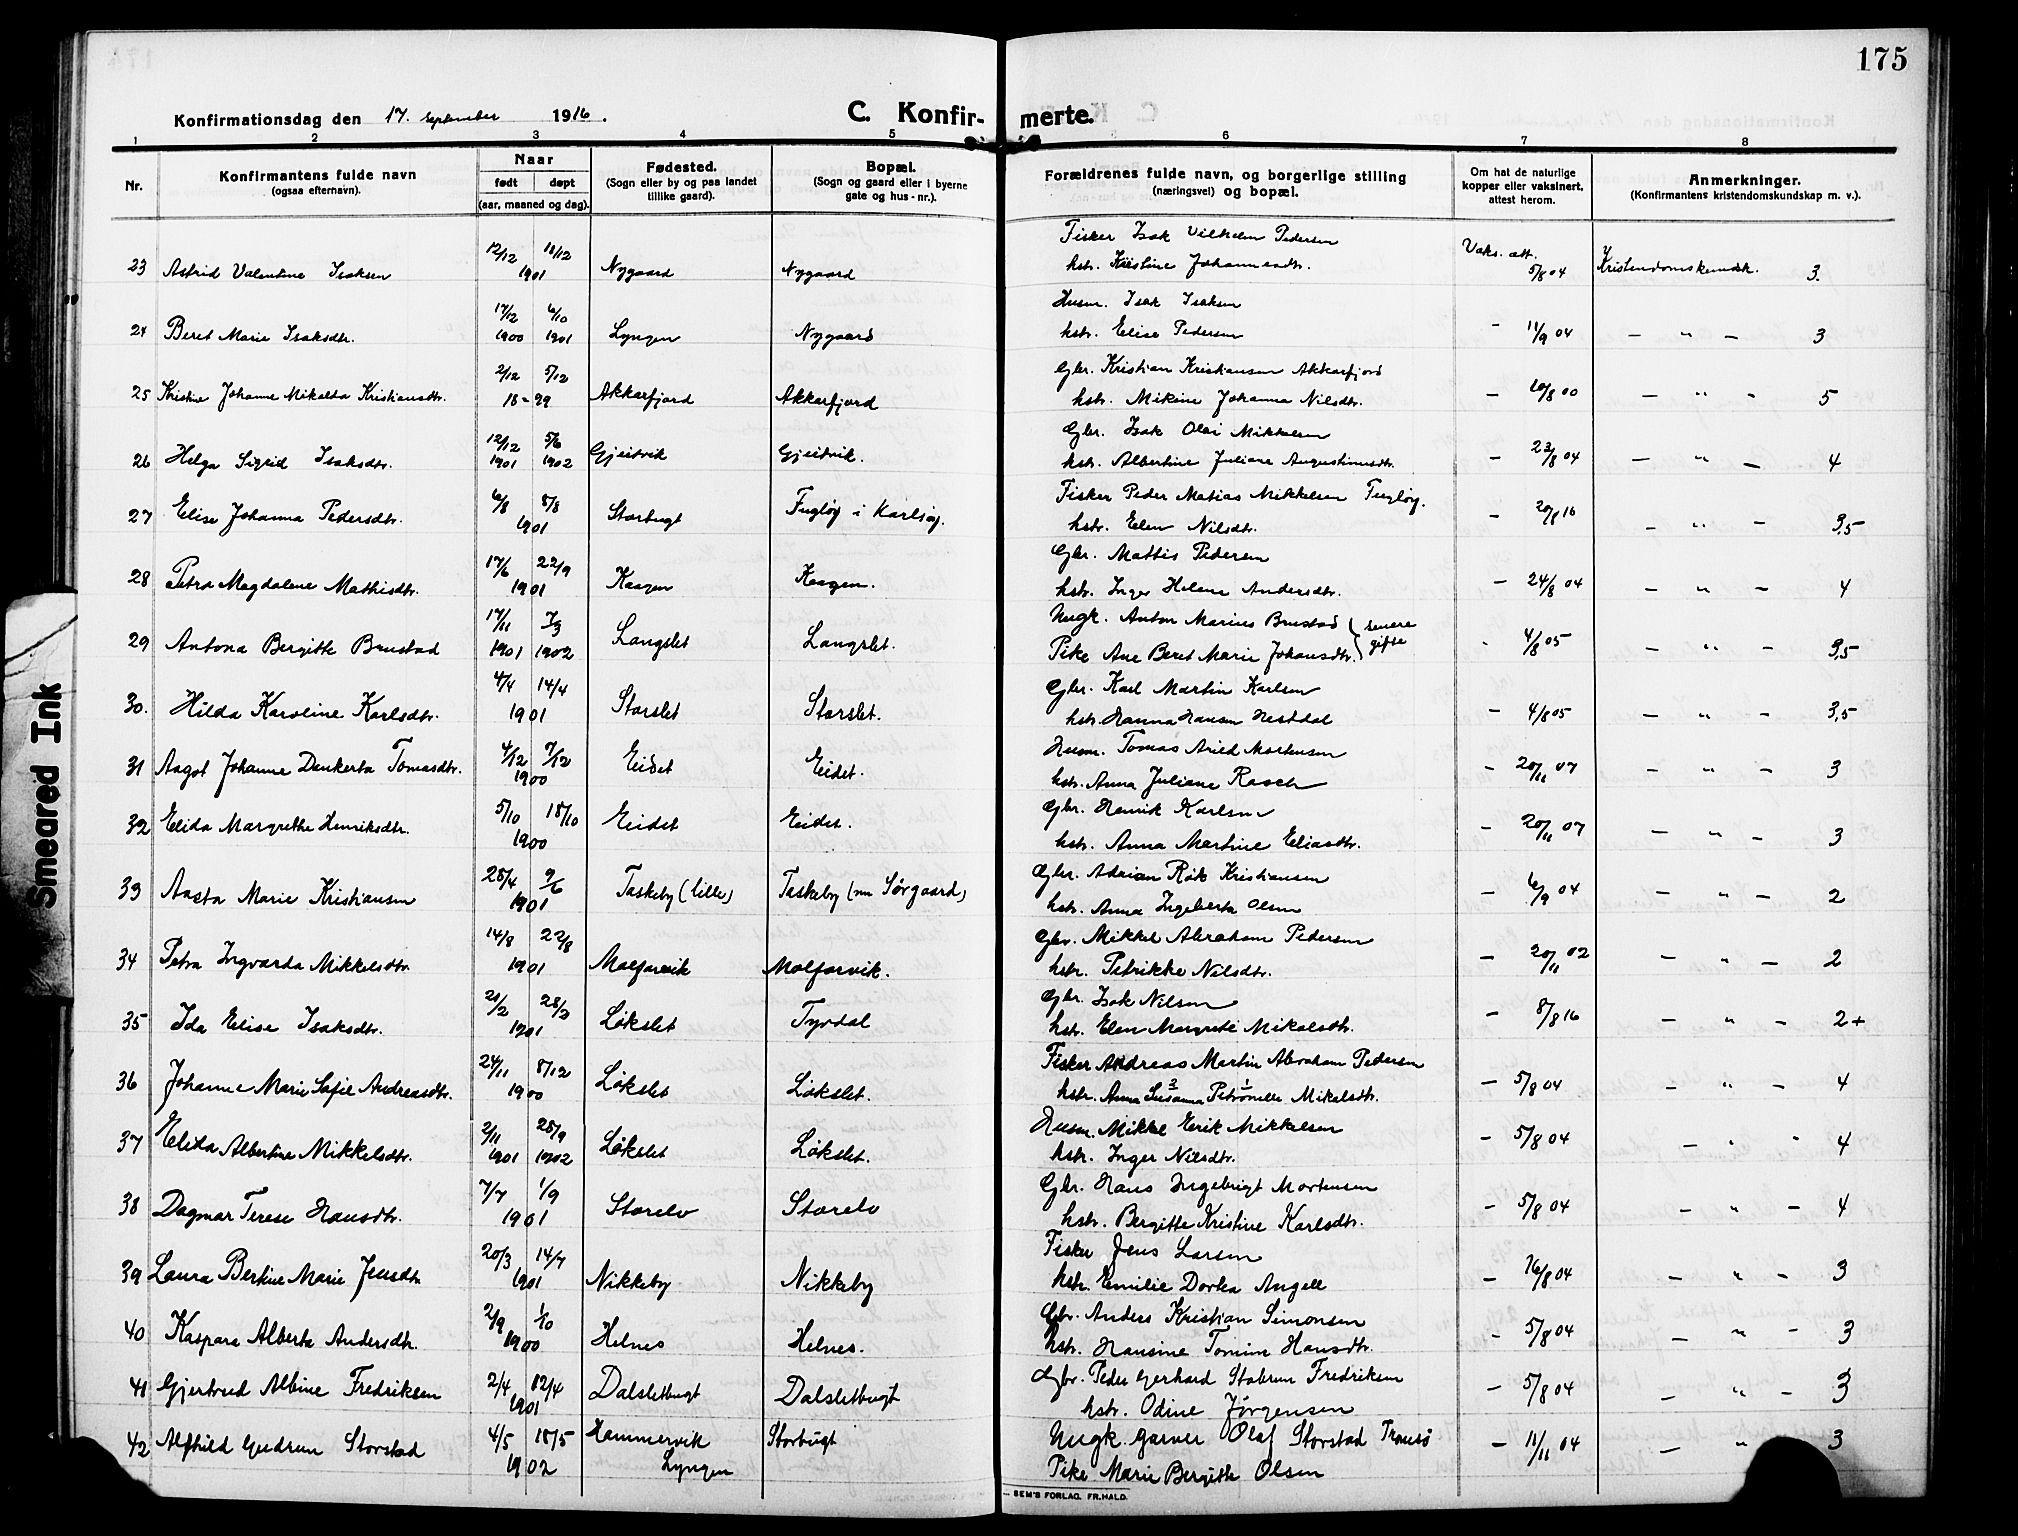 175
Konfirmationsdag den 17. September 1916.
C. Konfirmerte.
1 2 3 4 5 6 7 8
Nr.
Konfirmantens fulde navn
(ogsaa efternavn).
Naar
født døpt
(aar, maaned og dag).
Fødested.
(Sogn eller by og paa landet
tillike gaard).
Bopæl.
(Sogn og gaard eller i byerne
gate og hus-nr.).
Forældrenes fulde navn, og borgerlige stilling
(næringsvei) og bopæl.
Om hat de naturlige
kopper eller vaksinert,
attest herom.
Anmerkninger.
(Konfirmantens kristendomskundskap m. v.).
Fisker Isak Vilhelm Pedersen
23 Astrid Valentine Isaksen 12/12 18/12 1901 Nygaard Nygaard hstr. Kristine Johannesdtr. Vaks. att. 5/8 04 Kristendomskundsk. 3.
Husm. Isak Isaksen
24 Beret Marie Isaksdtr. 17/12 1900 6/10 1901 Lyngen Nygaard hstr. Elise Pedersen - 11/9 04 - " - 3
Gbr. Kristian Kristiansen Akkarfjord
25 Kristine Johanne Mikalda Kristiansdtr. 2/12 5/12 18-99 Akkarfjord Akkarfjord hstr. Mikine Johanna Nilsdtr. - 10/8 00 - " - 5
Gbr. Isak Olai Mikkelsen
26 Helga Sigrid Isaksdtr. 12/12 1901 5/6 1902 Gjeitvik Gjeitvik. hstr. Albertine Juliane Augustinusdtr. - 23/8 04 - " - 4
Fisker Peder Matias Mikkelsen Fugløy.
27 Elise Johanna Pedersdtr. 6/8 8/8 1901 Storbugt Fugløy i Karlsøy. hstr. Elen Nilsdtr. - 20/8 16 - " - 3,5
Gbr. Mattis Pedersen
28 Petra Magdalene Mathisdtr. 17/6 22/9 1901 Kaagen Kaagen. hstr. Inger Helene Andersdtr. - 24/8 04 - " - 4
Ungk. Anton Marius Brustad } senere gifte
29 Antona Bergitte Brustad 17/11 1901 7/3 1902 Langslet Langslet. Pike Ane Beret Marie Johansdtr. - 4/8 05 - " - 3,5
Gbr. Karl Martin Karlsen
30. Hilda Karoline Karlsdtr. 4/4 14/4 1901 Storslet Storslet. hstr. Hanna Hansen Hestdal - 4/8 05 - " - 3,5
Husm. Tomas Arild Mortensen
31 Aagot Johanne Denkerta Tomasdtr. 4/12 7/12 1900 Eidet Eidet. hstr. Anna Juliane Rasch - 20/11 07 - " - 3
Gbr. Henrik Karlsen
32 Elida Margrethe Henriksdtr. 5/10 18/10 1900 Eidet Eidet. hstr. Anna Martine Eliasdtr. - 20/11 07 - " - 3
Gbr. Adrian Røik Kristiansen
33 Aasta Marie Kristiansen 28/4 9/6 1901 Taskeby (lille) Taskeby (nu Sørgaard) hstr. Anna Ingeberta Olsen - 6/9 04 - " - 2
Gbr. Mikkel Abraham Pedersen
34 Petra Ingvarda Mikkelsdtr. 14/8 22/8 1901 Molfarvik Molfarvik. hstr. Petrikke Nilsdtr. - 20/11 02 - " - 2
Gbr. Isak Nilsen
35 Ida Elise Isaksdtr. 21/2 28/2 1901 Løkslet Tyrdal hstr. Elen Margrete Mikalsdtr. - 8/8 16 - " - 2+
Fisker Andreas Martin Abraham Pedersen
36 Johanne Marie Sofie Andreasdtr. 24/11 8/12 1900 Løkslet Løkslet. hstr. Anna Susanna Petronelle Mikelsdtr. - 5/8 04 - " - 4
Husm. Mikkel Erik Mikkelsen
37 Elida Albertine Mikkelsdtr. 2/11 1901 28/9 1902 Løkslet Løkslet. hstr. Inger Nilsdtr. - 5/8 04 - " - 4
Gbr. Hans Ingebrigt Mortensen
38 Dagmar Terese Hansdtr. 7/7 1/9 1901 Storelv Storelv hstr. Bergitte Kristine Karlsdtr. - 5/8 04 - " - 4
Fisker Jens Larsen
39 Laura Bertine Marie Jensdtr 20/3 14/7 1901 Nikkeby Nikkeby hstr. Emilie Dorka Angell - 16/8 04 - " - 3
Gbr. Anders Kristian Simonsen
40 Kaspara Alberta Andersdtr. 2/9 1/10 1900 Helnes Helnes. hstr. Hansine Tomine Hansdtr. - 5/8 04 - " - 3
Gbr. Peder Gerhard Stabrun Fredriksen
41 Gjertrud Albine Fredriksen 2/4 12/4 1901 Dalsletbugt Dalsletbugt hstr. Odine Jørgensen - 5/8 04 - " - 3
42 Alfhild Gudrun Storstad 4/5 18/5 1902 Hammervik Lyngen Storbugt Ungk. garver Olaf Storstad Tromsø - 11/11 04 - " 3
Pike Marie Bergitte Olsen
SEM'S FORLAG. FR. HALD.
Smeared Ink